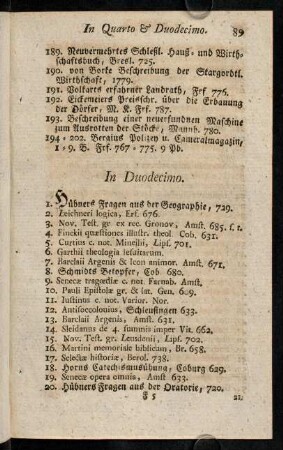 In Quarto & Duodecimo. 89
189. Neuvermehrtes Schlesil. Hauß- und Wirth-
schaftsbuch, Bresl. 725.
190. von Borke Beschreibung der Stargordtl.
Wirthschaft, 1779.
191. Volkarts erfahrner Landrath, Frf 776.
192. Eickemeiers Preisschr. über die Erbauung
der Dörfer, M. K. Frf. 787.
193. Beschreibung einer neuerfundnen Maschine
zum Ausrotten der Stöcke, Mannh. 780.
194 - 202. Bergius Polizey u. Cameralmagazin,
1 - 9. B. Frf. 767 - 775. 9 Pb.
In Duodecimo.
1. Hübners Fragen aus der Geographie, 729.
2. Zeichneri logica, Erf. 676.
3. Nov. Test. gr. ex rec. Gronov, Amst. 685. f. r.
4. Finckii quæstiones illustr. theol. Cob. 631.
5. Curtius c. not. Minellii, Lips. 701.
6. Garthii theologia iesuitarum.
7. Barclaii Argenis & Icon animor. Amst. 671.
8. Schmidts Betopfer, Cob. 680.
9. Senecæ tragœdiæ c. not. Farnab. Amst.
10. Pauli Epistolæ gr. & lat. Gen. 629.
11. Iustinus c. not. Varior. Nor.
12. Antisoccolouius, Schleusingen 633.
13. Barclaii Argenis, Amst. 631.
14. Sleidanus de 4. summis imper Vit. 662.
15. Nov. Test. gr. Leusdenii, Lips. 702.
16. Martini memoriale biblicum, Br. 658.
17. Selectæ historiæ, Berol. 738.
18. Horns Catech-smusübung, Coburg 629.
19. Senecæ opera omnia, Amst. 633.
20. Hübners Fragen aus der Oratorie, 720.
F 5 21.